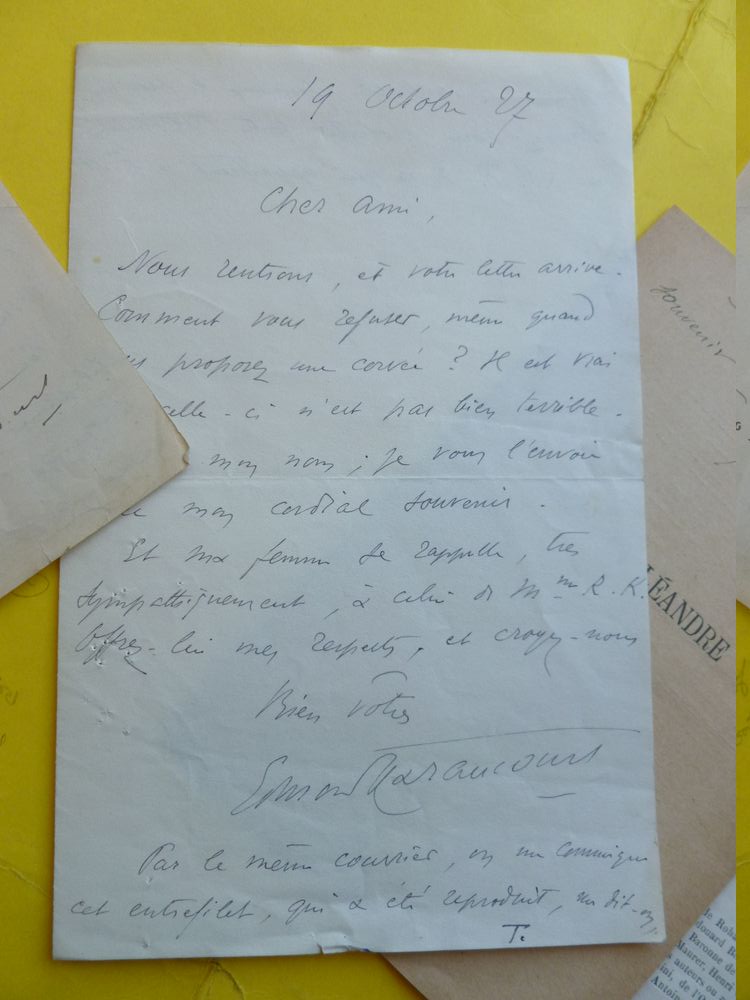 19 Octobre 27
Cher ami,
Nous rentrons, et votre lettre arrive.
Comment vous refuser, même quand
proposez une corvée ? Il est vrai
celle-ci n'est pas bien terrible.
mon nom ; je vous l'envoie
mon cordial souvenir.
Et ma femme se rappelle, très
sympathiquement, à celui de Mme R. K.
Offrez-lui mes respects, et croyez-nous
Bien vôtres
Edmond Haraucourt
Par le même courrier, on me communique
cet entrefilet, qui a été reproduit, me dit-on,
T.
souvenir
LÉANDRE
de Roh
douard
Baronne de
Maurer, Henri
auteurs, ou
ini, de l'
Antoi